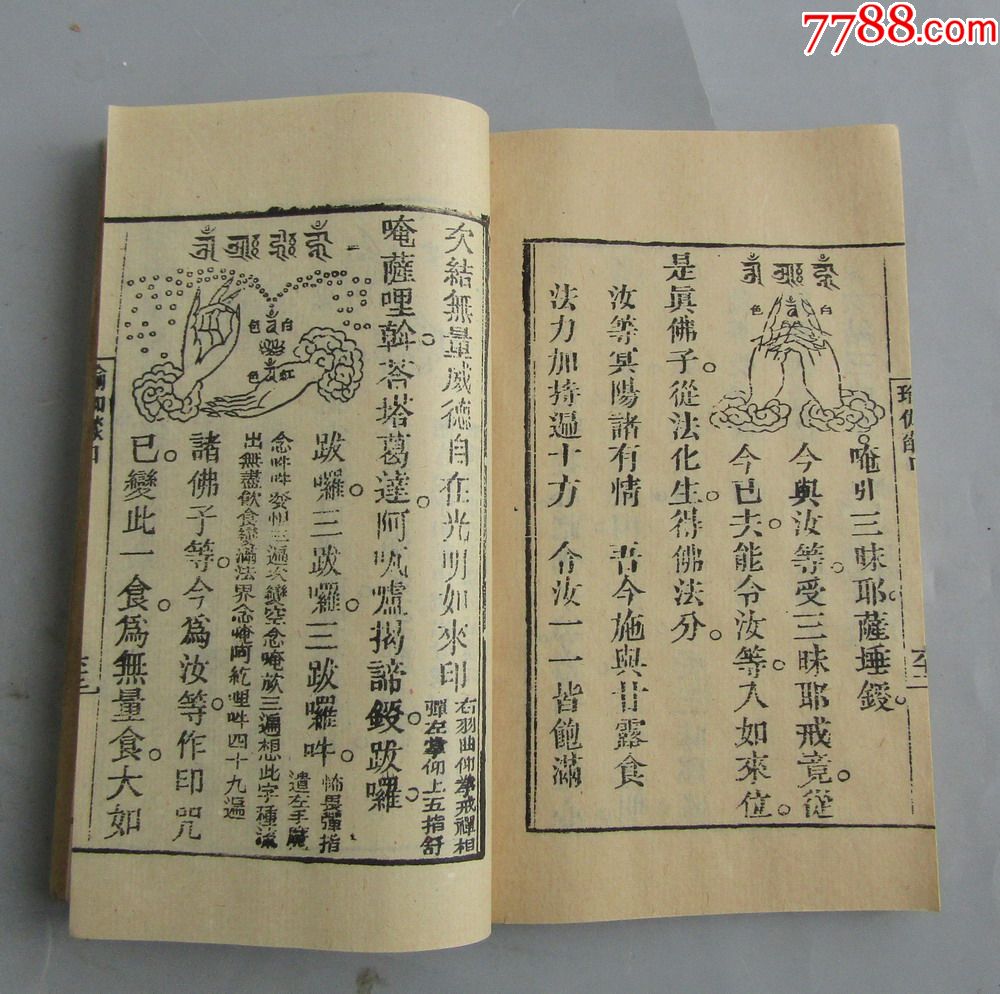 7788.com
唵引三昧耶。薩埵鋄。
今與汝等。受三昧耶戒竟。從
今已去。能令汝等。入如來位。
是眞佛子。從法化生。得佛法分。
汝等冥陽諸有情 吾今施與甘露食
法力加持遍十方 令汝一一皆飽滿
白
色
次結無量威德自在光明如來印
右羽曲仰拳戒禪相
彈左掌仰上五指舒
唵薩哩斡荅塔葛達。阿呱爐揭諦。鋄跋囉。
跋囉。三跋囉。三跋囉吽。
怖畏彈指
遣左手魔
出無盡飲食變滿法界念唵阿紇哩吽四十九遍
諸佛子等。今爲汝等。作印咒
已。變此一食。爲無量食。大如
白
色
紅
色